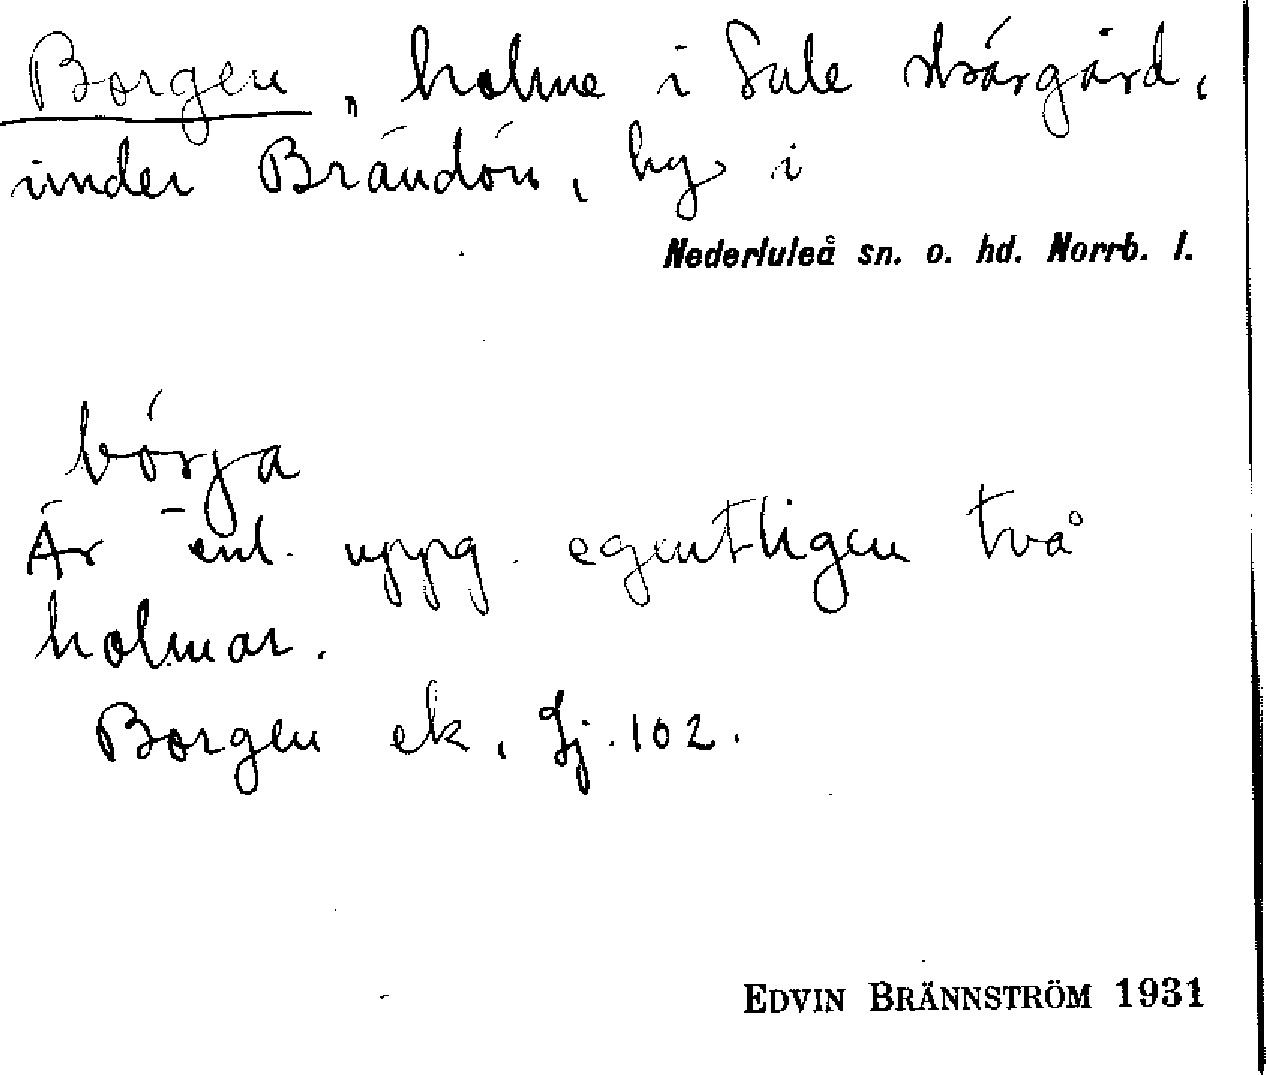 Borgen, holme i Lule skärgård,
under Brändön, by i
Nederluleå sn. o. hd. Norrb. l.
börja
Är enl. uppg. egentligen två
holmar.
Borgen ek. Gj. 102.
EDVIN BRÄNNSTRÖM 1931